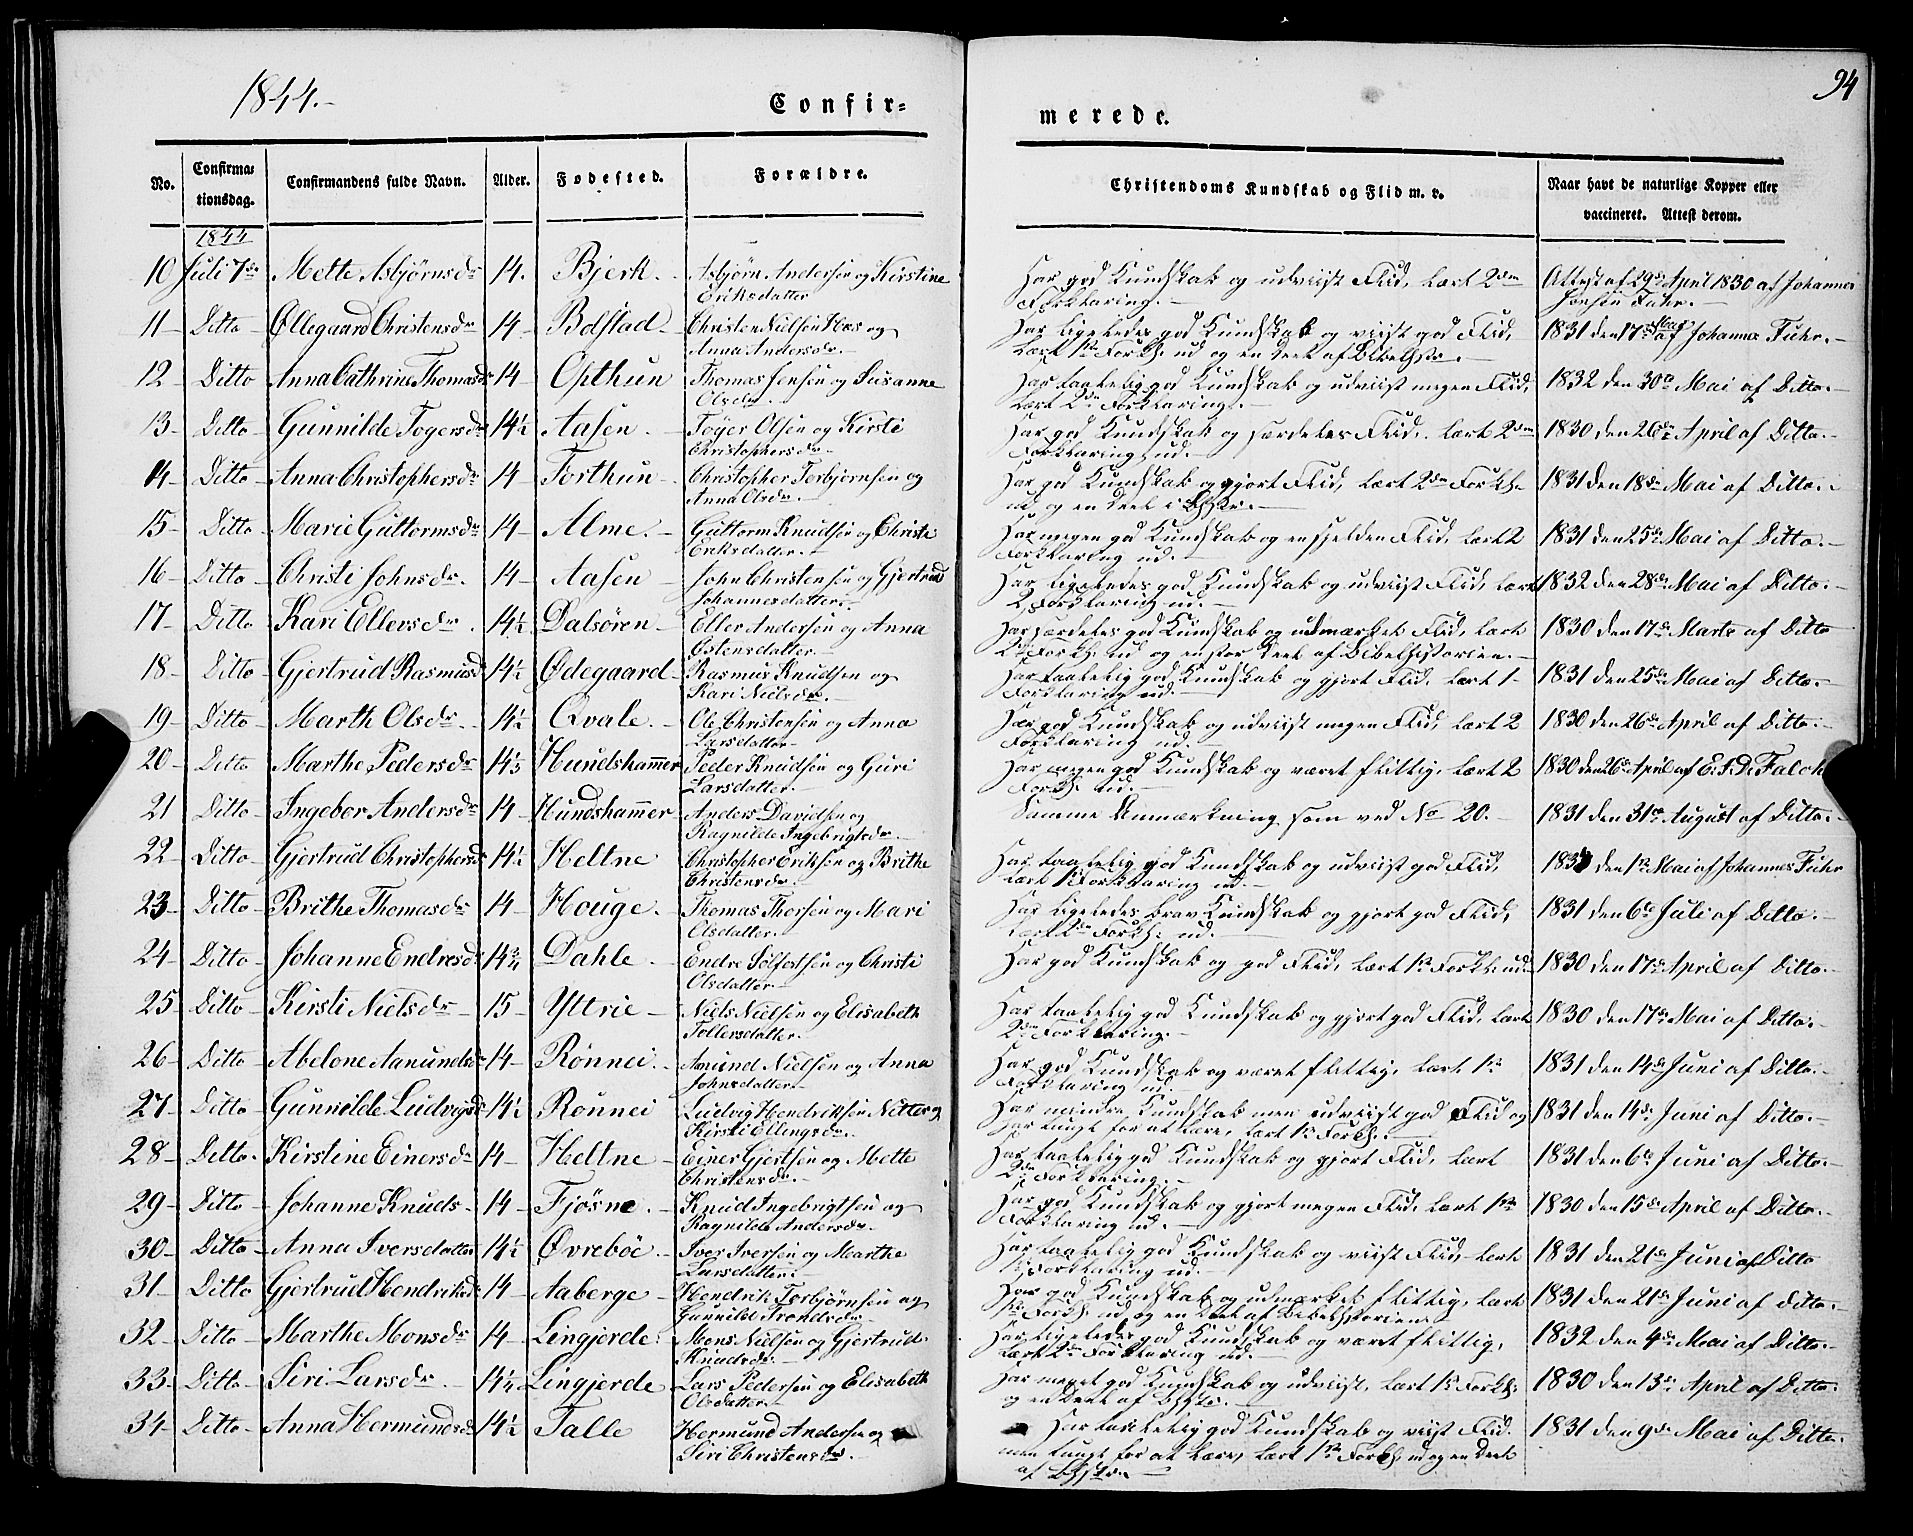 1844.-
Confir=
merede.
94
No.
Confirma=
tionsdag.
Confirmandens fulde Navn.
Alder.
Fødested.
Forældre.
Christendoms Kundskab og Flid m. v.
Naar havt de naturlige Kopper eller
vaccineret. Attest derom.
1844
10 Juli 7de Mette Asbjørnsdr 14. Bjerk - Asbjørn Andersen og Kirstine Har god Kundskab og udviist Flid, lært 2den Attest af 29de April 1830 af Johannes
Eriksdatter Forklaring. - Jensen Fuhr. -
11 - Ditto - Øllegaard Christensdr 14 - Bolstad - Christen Nielsen Næs og Har ligeledes god Kundskab og viist god Flid, 1831 den 17de Mai af Johannes Fuhr. -
Anna Andersdr. - lært 1ste Forkl. ud og en Deel af Bibelhist. -
12 - Ditto Anna Cathrina Thomasdr 14 - Opthun Thomas Jensen og Susanne Har taalelig god Kundskab og udviist megen Flid, 1832 den 30te Mai af Ditto. -
Olsdr. - lært 2den Forklaring. -
13 - Ditto - Gunnilde Togersdr 14½ Aasen - Tøger Olsen og Kirsti Har god Kundskab og særdeles Flid, lært 2den 1830 den 26de April af Ditto. -
Christophersdr. - Forklaring ud. -
14 - Ditto - Anna Christophersdr 14 - Forthun - Christopher Torbjørnsen og Har god Kundskab og gjort Flid, lært 2den Forkl. 1831 den 18de Mai af Ditto. -
Anna Olsdr. - ud og en Deel i -
15 - Ditto - Marie Guttormsdr 14 - Alme. - Guttorm Knudsen og Christi Har megen god Kundskab og en sjelden Flid, lært 2 1831 den 25de Mai af Ditto. -
Eriksdatter. - Forklaring ud. -
16 - Ditto - Christi Johnsdr. 14 - Aasen - John Christensen og Gjertrud Har ligeledes god Kundskab og udviist Flid, lært 1832 den 28de Mai af Ditto. -
Johannesdatter. - 2 Forklaring ud. -
17 - Ditto - Kari Ellersdr 14½ Dalsøren - Eller Andersen og Anna Har særdeles god Kundskab og udmærket Flid, lært 1830 den 17de Marts af Ditto
Ostensdatter. - 2den Forkl. ud og en stor Deel af Bibelhistorien. -
18 - Ditto - Gjertrud Rasmusdr 14½ Ødegaard - Rasmus Knudsen og Har taalelig god Kundskab og gjort Flid, lært 1 - 1831 den 25de Mai af Ditto. -
Kari Nielsdr. - Forklaring ud. -
19 - Ditto - Marth Olsdr 14½ Qvale. - Ole Christensen og Anna Har god Kundskab og udviist megen Flid, lært 2 1830 den 26de April af Ditto. -
Larsdatter - Forklaring ud. -
20 - Ditto Marthe Pedersdr 14⅓ Hundshammer Peder Knudsen og Guri Har megen god Kundskab og været flittig, lært 2 1830 den 26de April af E. A. D. Falch
Larsdatter. - Forkl. ud. -
21 Ditto - Ingebor Andersdr 14 - Hundshammer - Anders Davidsen og Samme Anmærkning som ved No 20. - 1831 den 31te August af Ditto. -
Ragnilde Ingebrigtsdr. -
22 - Ditto - Gjertrud Christophersdr 14½ Heltne Christopher Eriksen og Brithe Har taalelig god Kundskab og udviist god Flid, den 1ste Mai af Johannes Fuhr
Christensdr. - lært 1ste Forklaring ud. -
23 - Ditto - Brithe Thomasdr 14 - Houge. - Thomas Thorsen og Mari Har ligeledes brav Kundskab og gjort god Flid, 1831 den 6te Juli af Ditto. -
Olsdatter. - lært 2den Forkl. ud. -
24 - Ditto - Johanne Endresdr 14¾ Dahle - Endre Solfestsen og Christi Har god Kundskab og god Flid, lært 1ste Forkl. ud. 1830 den 17de April af Ditto. -
Olsdatter -
25 - Ditto - Kirsti Nielsdr - 15 - Yttrie - Niels Nielsen og Elisabeth Har taalelig god Kundskab og gjort god Flid, lært 1830 den 17de Mai af Ditto. -
Tollersdatter - 2den Forklaring. -
26 - Ditto - Abelone Aamundsdr 14 - Rønnei. - Amund Nielsen og Anna Har god Kundskab og været flittig, lært 1ste 1831 den 14de Juni af Ditto. -
Johnsdatter - Forklaring ud. -
27 - Ditto - Gunnilde Ludvigsdr 14½ Rønnei Ludvig Hendriksen Nitter og Har mindre Kundskab men udviist god Flid og 1831 den 14de Juni af Ditto. -
Kirsti Ellingsdr. - har tungt for at lære, lært 1ste Forkl. -
28 - Ditto. Kirstine Einersdr 14 - Heltne - Einer Gjertsen og Mette Har taalelig god Kundskab og gjort Flid, lært 1831 den 6te Juni af Ditto. -
Christensdr. - 2den Forklaring. -
29 - Ditto - Johanne Knuds - 14 - Fjøsne. - Knud Ingebrigtsen og Har god Kundskab og gjort megen Flid, lært 1ste 1830 den 15de April af Ditto. -
Ragnilde Andersdr. - Forklaring ud. -
30 - Ditto - Anna Iversdatter 14½ Øvrebøe - Iver Iversen og Marthe Har taalelig god Kundskab og viist Flid, lært 1831 den 21de Juni af Ditto
Larsdatter. - 1ste Forklaring ud. -
31 - Ditto Gjertrud Hendriksdr 14 - Aaberge - Hendrik Torbjørnsen og Har god Kundskab og udmærket flittig, lært 1831 den 21de Juni af ditto. -
Gunnild Trondsdr. - 1ste Forkl. ud og en Deel af Bibelhistorien
32 - Ditto - Marthe Monsdr 14 - Lingjerde. Mons Nielsen og Gjertrud Har ligeledes god Kundskab og været flittig, 1832 den 4de Mai af Ditto. -
Knudsdr. - lært 2den Forklaring ud. -
33 - Ditto - Siri Larsdr - 14¼ Lingjerde Lars Pedersen og Elisabeth Har meget god Kundskab og udviist, lært 1ste Forkl. 1830 den 13de April af Ditto.
Olsdatter. - og en Deel af
34 - Ditto - Anna Hermundsdr 14½ Talle Hermund Andersen og Har taalelig god Kundskab og viist Flid 1831 den 9de Mai af Ditto.
Siri Christensdr. - men tungt for at lære, lært 1ste Forkl. ud og en Deel
af